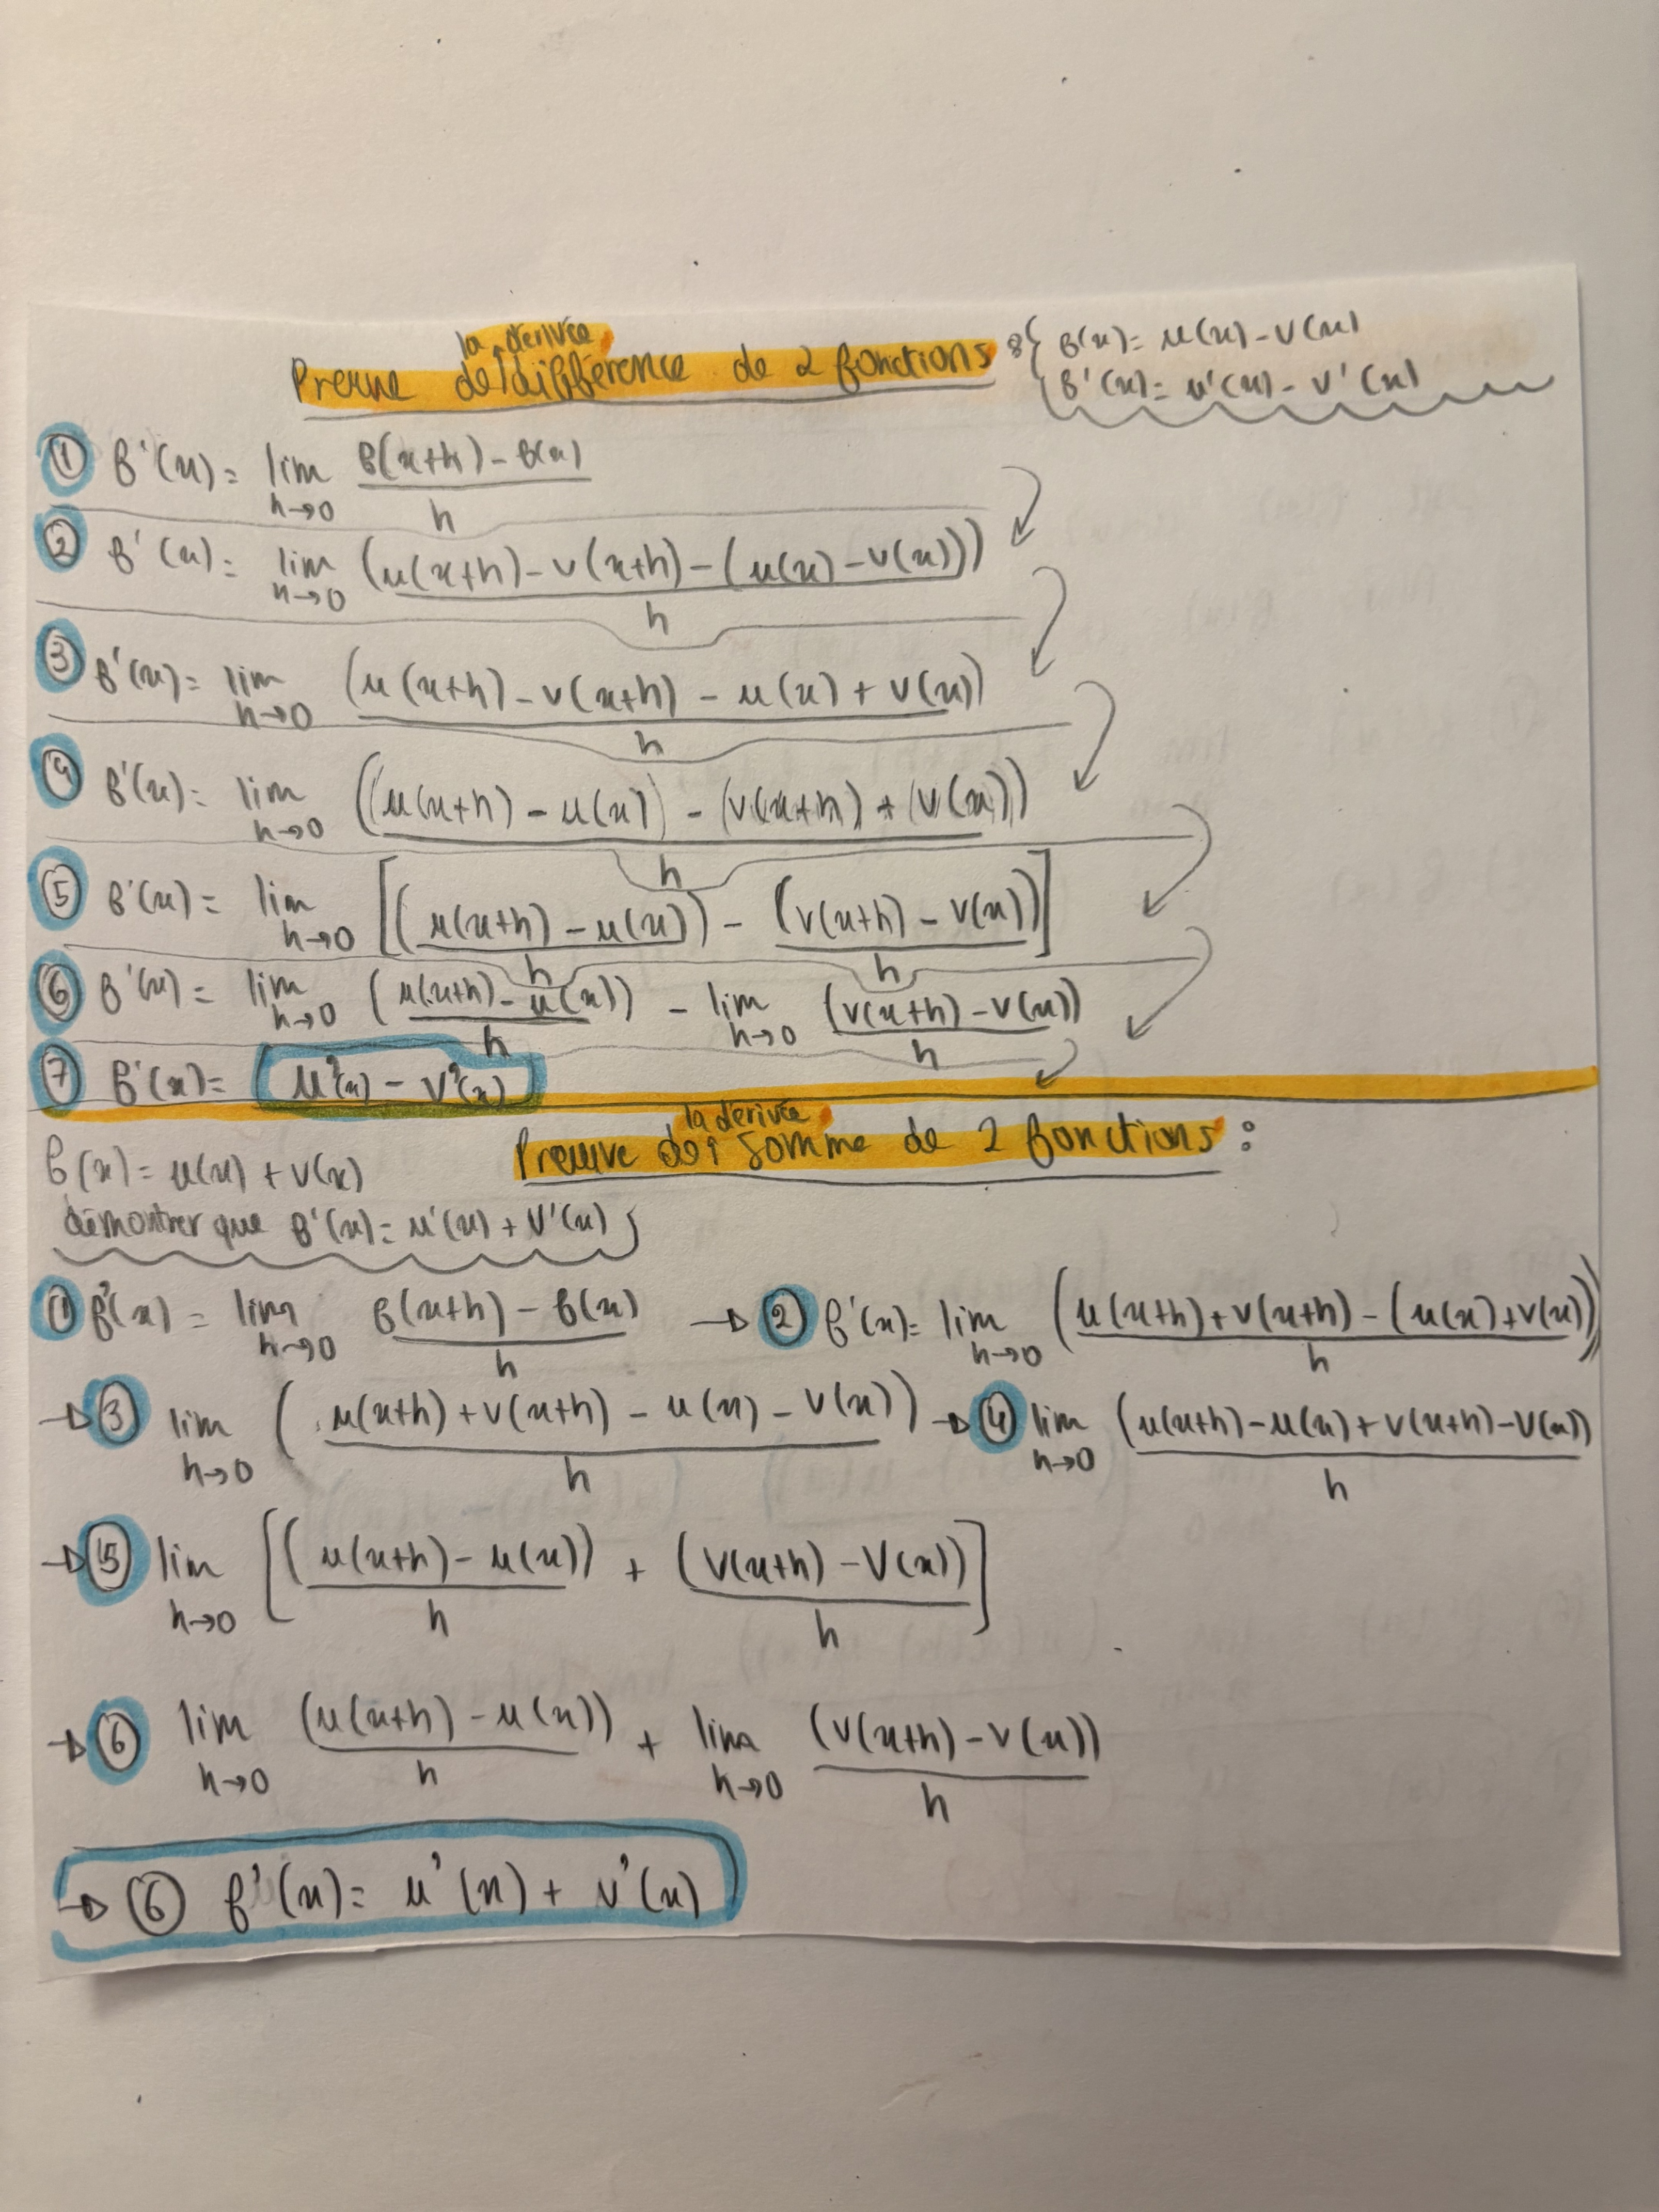 Preuve de la dérivée différence de 2 fonctions : { f(x) = u(x) - v(x)
f'(x) = u'(x) - v'(x)
① f'(x) = lim h→0 f(x+h) - f(x) / h
② f'(x) = lim h→0 (u(x+h) - v(x+h) - (u(x) - v(x))) / h
③ f'(x) = lim h→0 (u(x+h) - v(x+h) - u(x) + v(x)) / h
④ f'(x) = lim h→0 ((u(x+h) - u(x)) - (v(x+h) + (v(x))) / h
⑤ f'(x) = lim h→0 [(u(x+h) - u(x)) / h - (v(x+h) - v(x)) / h]
⑥ f'(x) = lim h→0 (u(x+h) - u(x)) / h - lim h→0 (v(x+h) - v(x)) / h
⑦ f'(x) = u'(x) - v'(x)
Preuve de la dérivée somme de 2 fonctions :
f(x) = u(x) + v(x)
démontrer que f'(x) = u'(x) + v'(x)
① f'(x) = lim h→0 f(x+h) - f(x) / h → ② f'(x) = lim h→0 (u(x+h) + v(x+h) - (u(x) + v(x))) / h
→ ③ lim h→0 (u(x+h) + v(x+h) - u(x) - v(x)) / h → ④ lim h→0 (u(x+h) - u(x) + v(x+h) - v(x)) / h
→ ⑤ lim h→0 [(u(x+h) - u(x)) / h + (v(x+h) - v(x)) / h]
→ ⑥ lim h→0 (u(x+h) - u(x)) / h + lim h→0 (v(x+h) - v(x)) / h
→ ⑥ f'(x) = u'(x) + v'(x)